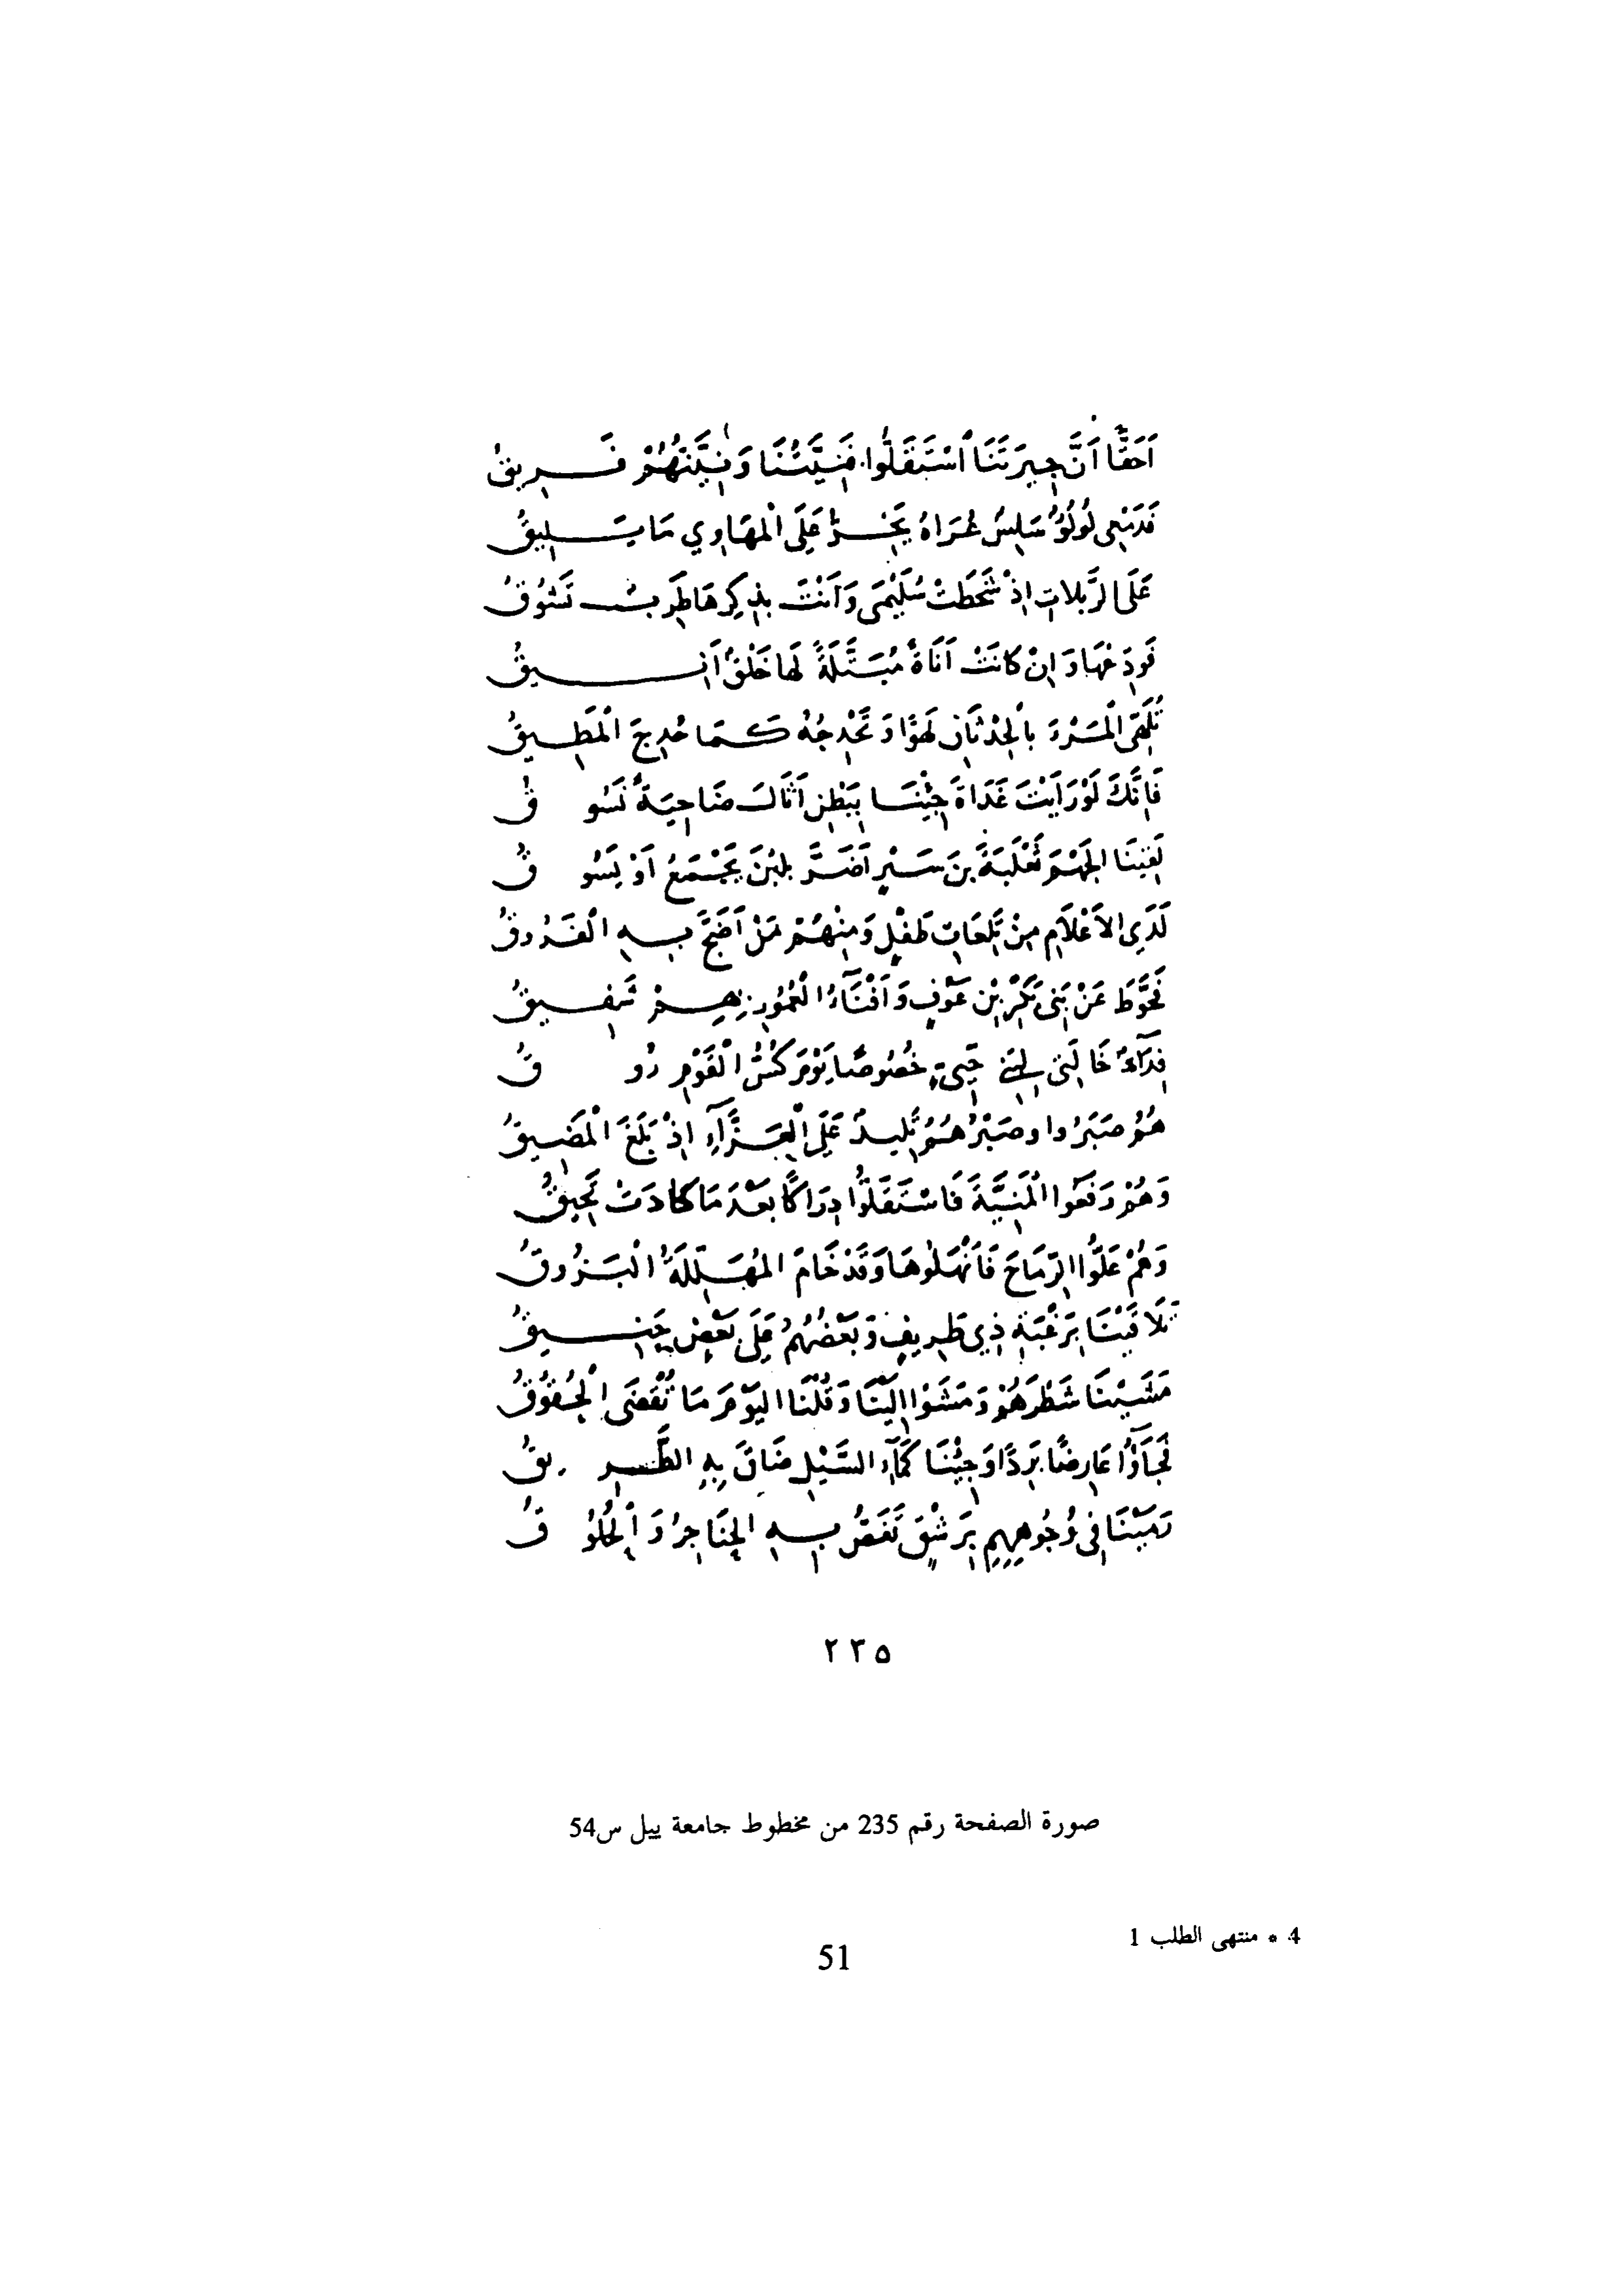 أَحَقًّا أَنَّ جِيرَتَنَا اسْتَقَلُّوا فَنِيَّتُنَا وَنِيَّتُهُمْ فَرِيقُ
فَدَمْعِي لُؤْلُؤٌ سَلِسٌ عُرَاهُ يَخِرُّ عَلَى الْمَهَاوِي مَا يَلِيقُ
عَلَى الرَّبَلَاتِ إِذْ شَحَطَتْ سُلَيْمَى وَأَنْتَ بِذِكْرِهَا طَرِبٌ تَشُوقُ
فَوَدِّعْهَا وَإِنْ كَانَتْ أَنَاةً مُبَتَّلَةً لَهَا خَلْقٌ أَنِيقُ
تُلَهِّي الْمَرْءَ بِالْحِدْثَانِ لَهْوًا وَتَحْدِجُهُ كَمَا حُدِجَ الْمُطِيقُ
فَإِنَّكَ لَوْ رَأَيْتَ غَدَاةَ جِئْنَا بِبَطْنِ أُثَالَ ضَاحِيَةً نَسُوقُ
لَقِينَا الْجَهْمَ ثَعْلَبَةَ بْنَ سَيْرٍ أَضَرَّ بِمَنْ يَجْمَعُ أَوْ يَسُوقُ
لَدَى الْأَعْلَامِ مِنْ تَلَعَاتِ طَفْلٍ وَمِنْهُمْ مَنْ أَضَجَّ بِهِ الْفَرُوقُ
فَحَوَّطَ عَنْ بَنِي بَكْرِ بْنِ عَوْفٍ وَأَفْنَاءُ الْعُمُورِ بِهِمْ شَفِيقُ
فِدَاءٌ خَالَتِي لِبَنِي حُيَيٍّ خُصُوصًا يَوْمَ كُسُّ الْقَوْمِ رُوقُ
هُمُ صَبَرُوا وَصَبْرُهُمُ تَلِيدٌ عَلَى الْعَزَّاءِ إِذْ بَلَغَ الْمَضِيقُ
وَهُمْ دَفَعُوا الْمَنِيَّةَ فَاسْتَقَلُّوا دِرَاكًا بَعْدَ مَا كَادَتْ تَحِيقُ
وَهُمْ عَلُّوا الرِّمَاحَ فَأَنْهَلُوهَا وَقَدْ خَامَ الْمُهَلِّلَةُ الْبَرُوقُ
تَلَاقَيْنَا بِرَغْبَةِ ذِي طَرِيفٍ وَبَعْضُهُمُ عَلَى بَعْضٍ حَنِيقُ
مَشَيْنَا شَطْرَهُمْ وَمَشَوْا إِلَيْنَا وَقُلْنَا الْيَوْمَ مَا تُقْضَى الْحُقُوقُ
فَجَاؤُوا عَارِضًا بَرِدًا وَجِئْنَا كَمَاءِ السَّيْلِ ضَاقَ بِهِ الطَّرِيقُ
رَمَيْنَا فِي وُجُوهِهِمِ بِرَشْقٍ تَغَصُّ بِهِ الْحَنَاجِرُ وَالْحُلُوقُ
٢٣٥
صورة الصفحة رقم 235 من مخطوط جامعة ييل س54
4 * منتهى الطلب 1
51